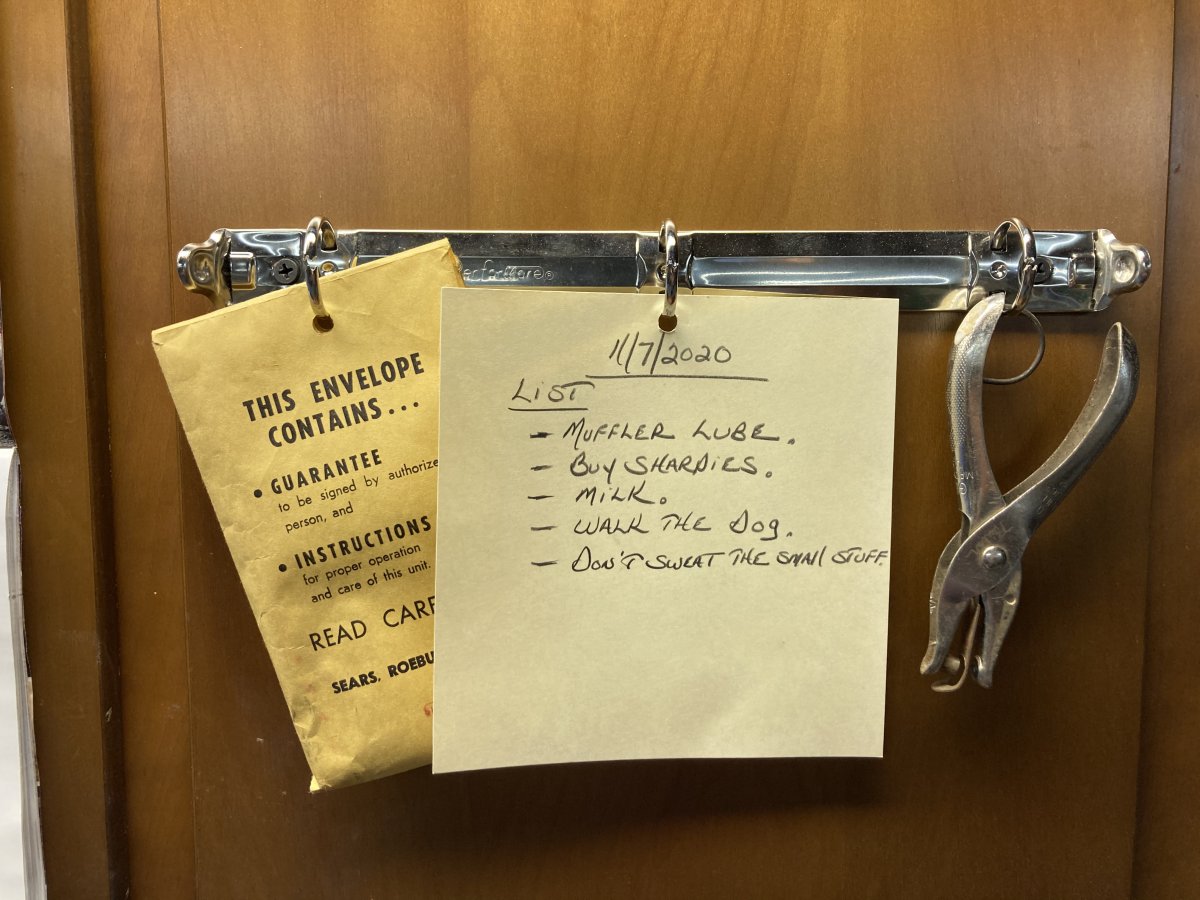 THIS ENVELOPE
CONTAINS...
• GUARANTEE
to be signed by authorize
person, and
• INSTRUCTIONS
for proper operation
and care of this unit.
READ CARE
SEARS, ROEBU
11/7/2020
LIST
- MUFFLER LUBE.
- BUY SHARPIES.
- MILK.
- WALK THE DOG.
- DON'T SWEAT THE SMALL STUFF.